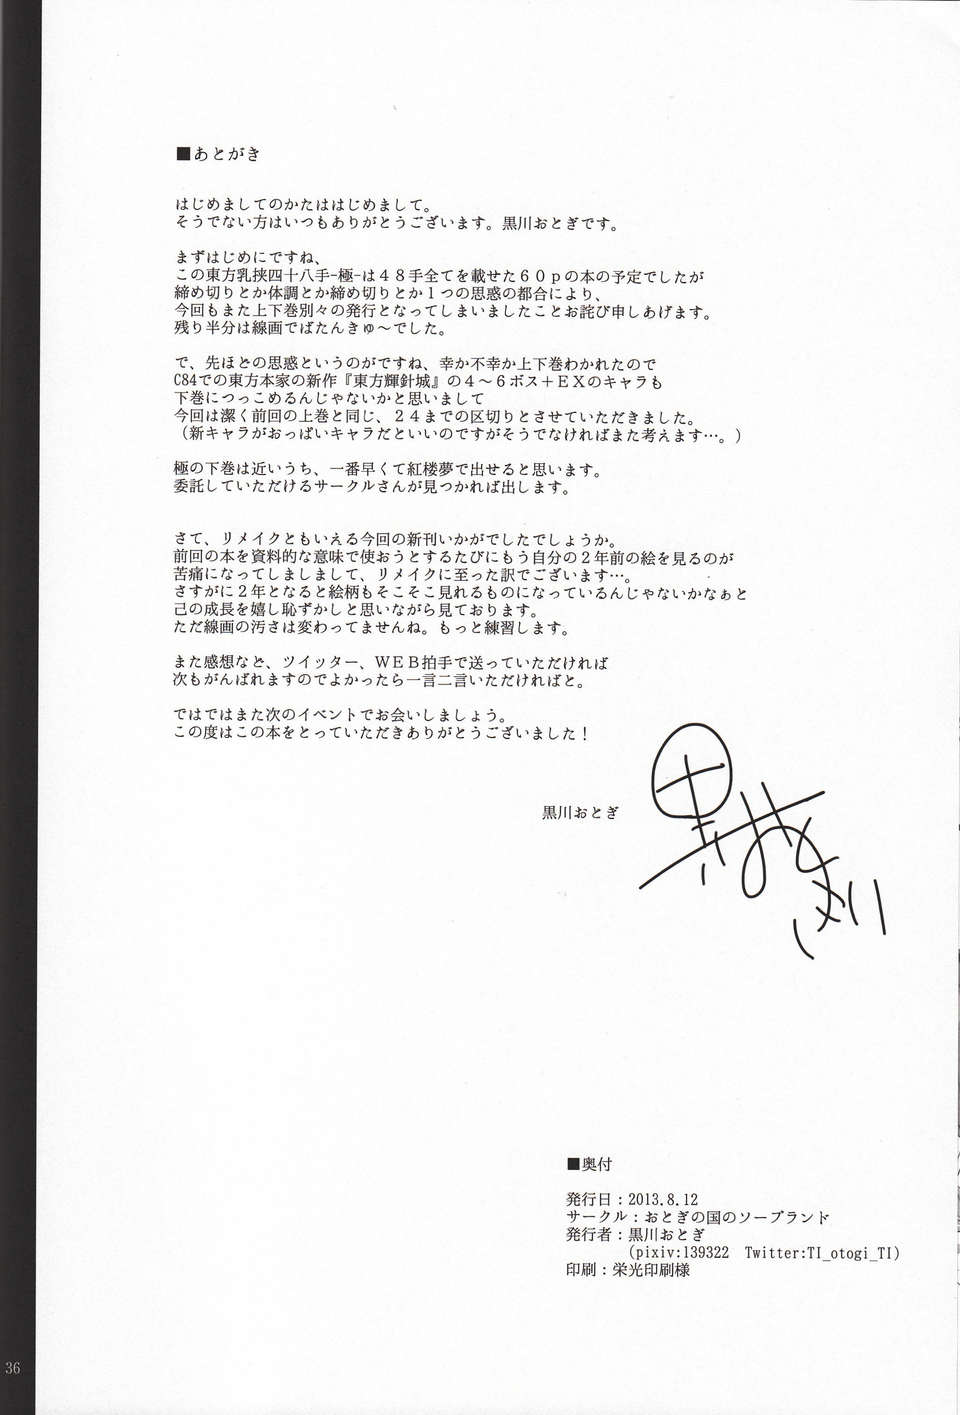 ■あとがき
はじめましてのかたははじめまして。
そうでない方はいつもありがとうございます。黒川おとぎです。
まずはじめにですね、
この東方乳挟四十八手-極-は４８手全てを載せた６０ｐの本の予定でしたが
締め切りとか体調とか締め切りとか１つの思惑の都合により、
今回もまた上下巻別々の発行となってしまいましたことお詫び申しあげます。
残り半分は線画でばたんきゅ～でした。
で、先ほどの思惑というのがですね、幸か不幸か上下巻わかれたので
C84での東方本家の新作『東方輝針城』の４～６ボス＋ＥＸのキャラも
下巻につっこめるんじゃないかと思いまして
今回は潔く前回の上巻と同じ、２４までの区切りとさせていただきました。
（新キャラがおっぱいキャラだといいのですがそうでなければまた考えます…。）
極の下巻は近いうち、一番早くて紅楼夢で出せると思います。
委託していただけるサークルさんが見つかれば出します。
さて、リメイクともいえる今回の新刊いかがでしたでしょうか。
前回の本を資料的な意味で使おうとするたびにもう自分の２年前の絵を見るのが
苦痛になってしましまして、リメイクに至った訳でございます…。
さすがに２年となると絵柄もそこそこ見れるものになっているんじゃないかなぁと
己の成長を嬉し恥ずかしと思いながら見ております。
ただ線画の汚さは変わってませんね。もっと練習します。
また感想など、ツイッター、ＷＥＢ拍手で送っていただければ
次もがんばれますのでよかったら一言二言いただければと。
ではではまた次のイベントでお会いしましょう。
この度はこの本をとっていただきありがとうございました！
黒川おとぎ
黒川おとぎ
■奥付
発行日：2013.8.12
サークル：おとぎの国のソープランド
発行者：黒川おとぎ
(pixiv:139322　Twitter:TI_otogi_TI)
印刷：栄光印刷様
36